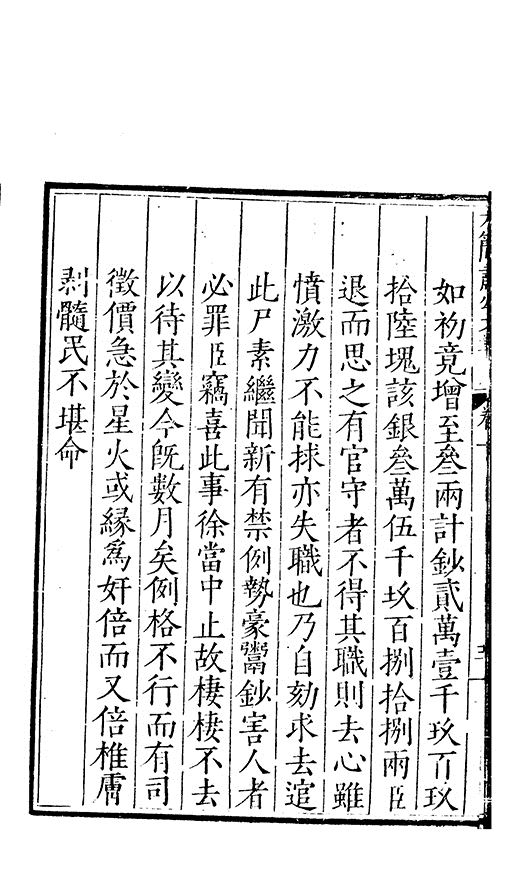 如初竟增至叁兩計鈔貳萬壹千玖百玖
拾陸塊該銀叁萬伍千玖百捌拾捌兩臣
退而思之有官守者不得其職則去心雖
憤激力不能捄亦失職也乃自劾求去逭
此尸素繼聞新有禁例勢豪鬻鈔害人者
必罪臣竊喜此事徐當中止故棲棲不去
以待其變今旣數月矣例格不行而有司
徵價急於星火或緣爲奸倍而又倍椎膚
剥髓民不堪命